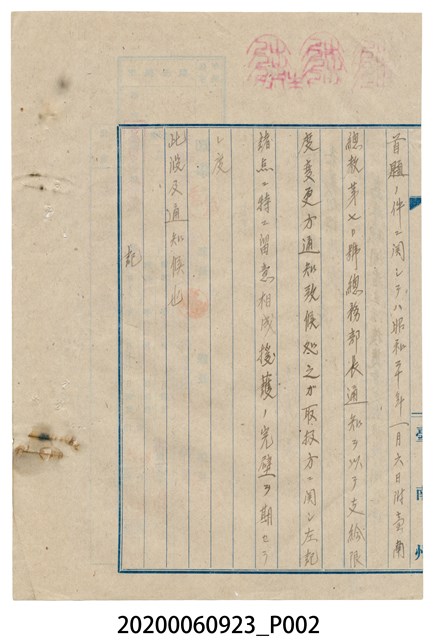 首題ノ件ニ関シテハ昭和二十年一月六日附臺南
總教第七〇號總務部長通知ヲ以テ支給限
度変更方通知致候処之ガ取扱方ニ関シ左記
諸点ニ特ニ留意相成援護ノ完璧ヲ期セラ
レ度
此段及通知候也
記
臺南州
20200060923_P002